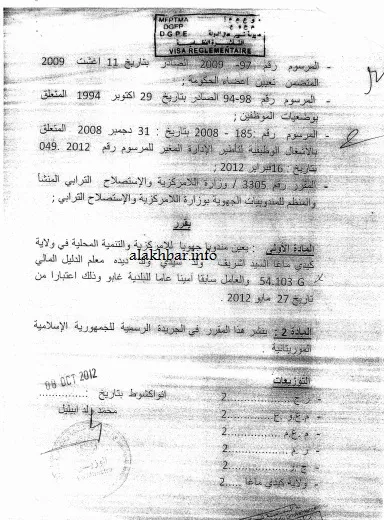 MFPTMA
DGFP
D G P E
VISA REGLEMENTAIRE
- المرسوم رقم 97- 2009 الصادر بتاريخ 11 اغشت 2009
المتضمن تعيين أعضاء الحكومة ;
- المرسوم رقم 98-94 الصادر بتاريخ 29 اكتوبر 1994 المتعلق
بوضعيات الموظفين ;
- المرسوم رقم 185- 2008 بتاريخ : 31 دجمبر 2008 المتعلق
بالأشغال الوظيفية لتأطير الإدارة المغير للمرسوم رقم 2012 .049
بتاريخ : 16فبراير 2012 ;
- المقرر رقم 3305 / وزارة اللامركزية والإستصلاح الترابي المنشأ
والمنظم للمندوبيات الجهوية بوزارة اللامركزية والإستصلاح الترابي ;
يقرر
المادة الأولى : يعين مندوبا جهويا للامركزية والتنمية المحلية في ولاية
كيدي ماغا السيد الشريف ولد سيدي ولد ديده معلم الدليل المالي
alakhbar.info
54.103 G والعامل سابقا أمينا عاما لبلدية غابو وذلك اعتبارا من
تاريخ 27 مايو 2012 .
المادة 2 : ينشر هذا المقرر في الجريدة الرسمية للجمهورية الإسلامية
الموريتانية .
08 OCT 2012
انواكشوط بتاريخ :
محمد ولد ابيليل
التوزيعات
- ر.ج 2
- م.ع.و.ح 2
- م.ع.م 2
- و.م 2
- ج.ر 2
- ولاية كيدي ماغا 2